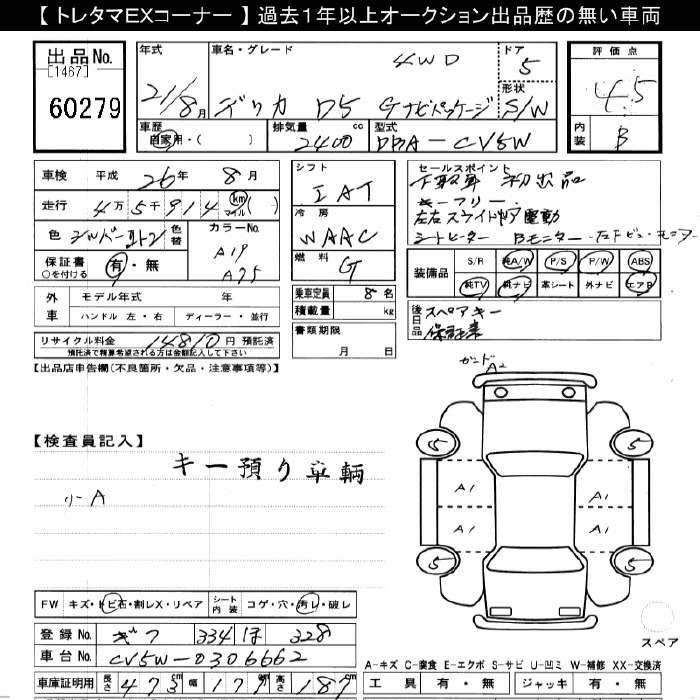 【トレタマEXコーナー】過去1年以上オークション出品歴の無い車両
出品No.
[1467]
60279
年式 車名・グレード ドア
4WD 5
21/8月 デリカ D5 Gナビパッケージ
形状
S/W
評価点
4.5
内装 B
車歴 自家用・( )
排気量 cc
2400
型式
DBA-CV5W
車検 平成 26年 8月
走行 4万5千914 km マイル ( )
色 シルバー2トン
色替
カラーNo.
A19
A75
保証書 ○を付ける 有・無
外車 モデル年式 年
ハンドル 左・右 ディーラー・並行
リサイクル料金 14810円 預託済
預託済で精算希望される方は金額記入して下さい
シフト
IAT
冷房
WAAC
燃料
G
乗車定員 8名
積載量 kg
書類期限
月 日
セールスポイント
下取車 初出品
キーフリー
左右スライドドア電動
シートヒーター Bモニター
装備品 S/R 純A/W P/S P/W ABS
純TV 純ナビ 革シート 外ナビ エアB
後日品 スペアキー
保証書
【出品店申告欄(不良箇所・欠品・注意事項等)】
【検査員記入】
キー預り車輌
リーA
ガード A2
5 5
A1 A1
A1 A1
5 5
スペア
FW キズ・トビ石・割レX・リペア シート内装 コゲ・穴・汚レ・破レ
登録No. ギフ 334 ほ 328
車台No. CV5W-0306662
車庫証明用 長さ 473cm 幅 179cm 高さ 187cm
A-キズ C-腐食 E-エクボ S-サビ U-凹ミ W-補修 XX-交換済
工具 有・無 ジャッキ 有・無